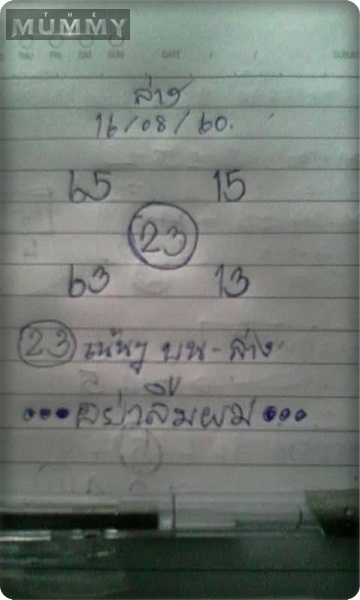 THE
MUMMY
THU FRI SAT SUN DATE / /
ล่าง
16/08/60.
65 15
23
63 13
23 เน้นๆ บน-ล่าง
อย่าลืมผม